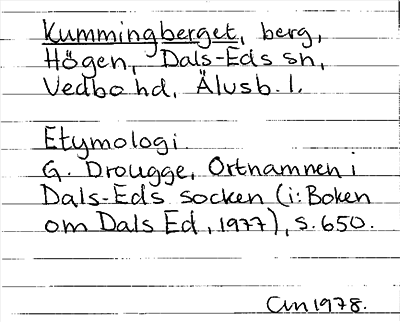 Kummingberget, berg,
Högen, Dals-Eds sn,
Vedbo hd, Älvsb. l.
Etymologi.
G. Drougge, Ortnamnen i
Dals-Eds socken (i: Boken
om Dals Ed, 1977), s. 650.
CM 1978.